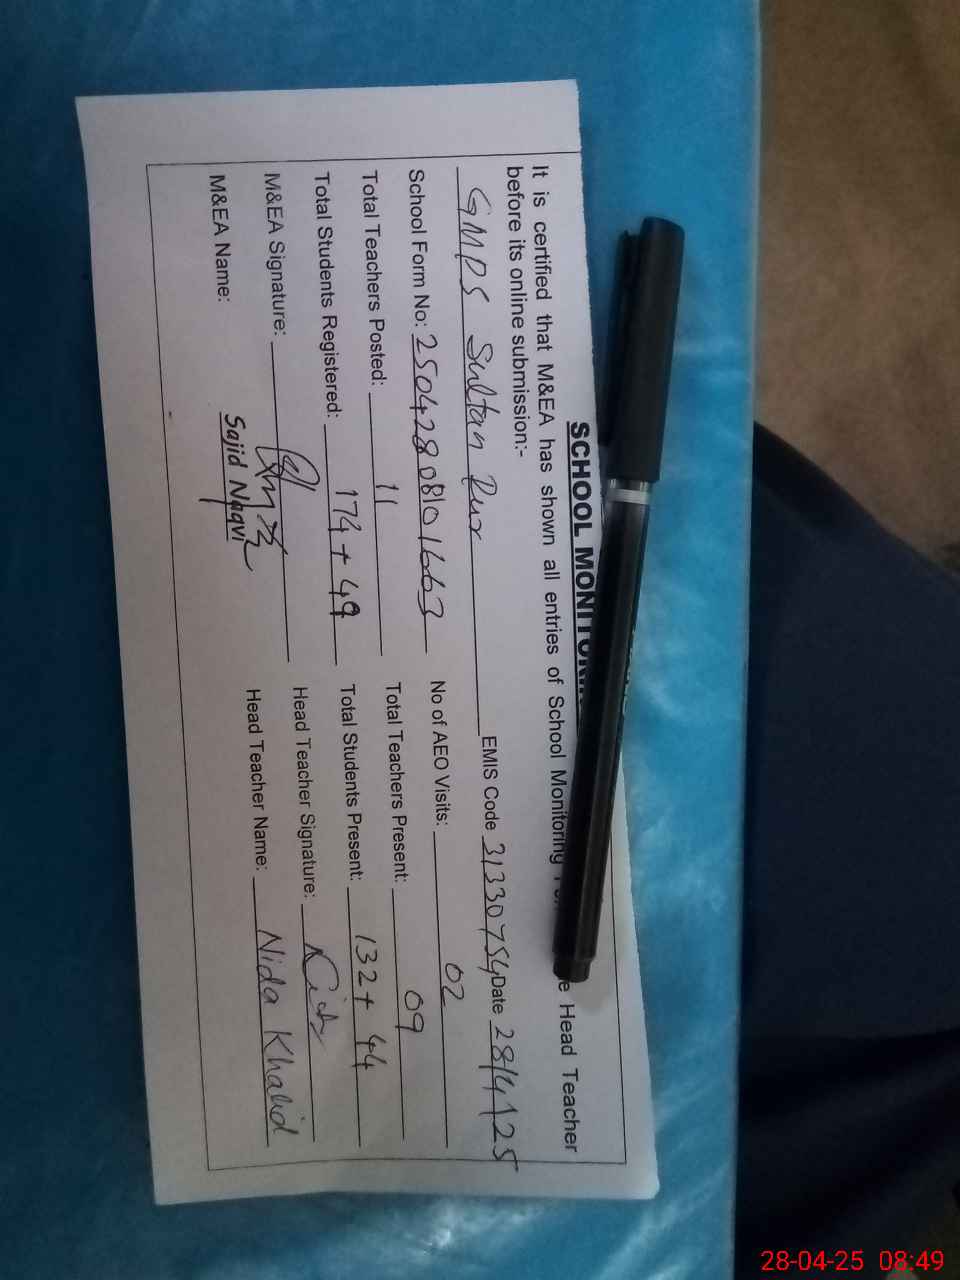 SCHOOL MONITORI
It is certified that M&EA has shown all entries of School Monitoring Head Teacher
before its online submission:-
GMPS Sultan Pur EMIS Code 31330754 Date 28/4/25
School Form No: 25042808101663 No of AEO Visits: 02
Total Teachers Posted: 11 Total Teachers Present: 09
Total Students Registered: 174 + 49 Total Students Present: 132 + 44
M&EA Signature: Head Teacher Signature:
M&EA Name: Sajid Naqvi Head Teacher Name: Nida Khalid
28-04-25 08:49